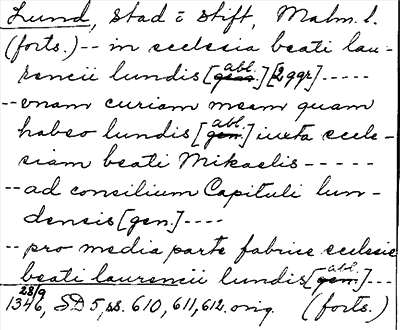 Lund, stad i stift, Malm. l.
(forts.) -- in ecclesia beati lau-
rencii lundis [gen. abl.] [2 ggr.] -----
-- vnam curiam meam quam
habeo lundis [gen. abl.] iuxta eccle-
siam beati Mikaelis -----
-- ad consilium Capituli lun-
densis [gen.] ----
-- pro media parte fabrice ecclesie
beati laurencii lundis [gen. abl.] ---
1346 28/9, SD 5, ss. 610, 611, 612. orig. (forts.)